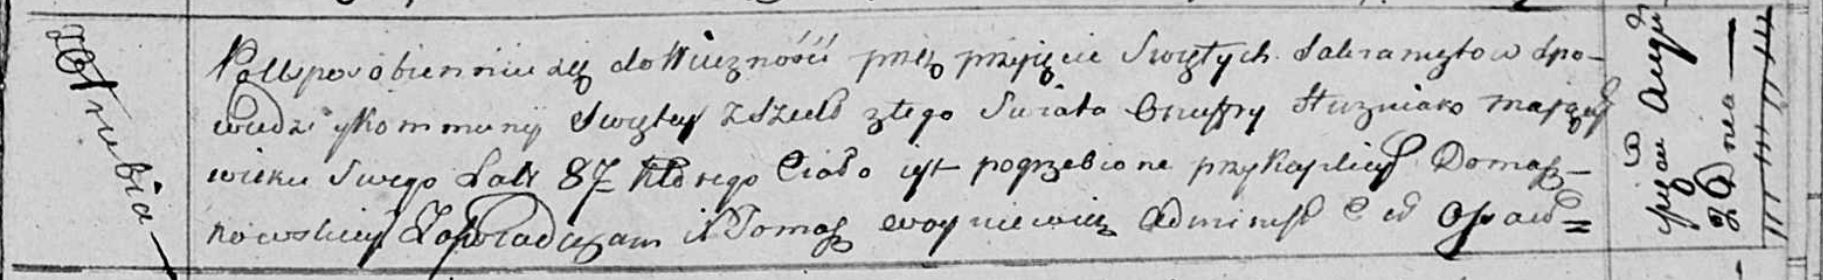 Hrubia
Po Usposobienniu się do Wieczności przez przyięcie Swiętych Sakramętow Spo-
wiedzi y Kommuny Swiętey zszedł z tego Swiata Onufry Huzniak maiący
wieku Swego Lat 87 którego Ciało iest pogrzebione przy Kaplicy Domasz-
kowskiey Zaswiadczam X Tomasz Woyniewicz Administ C Opaw=
Augu
Dnia